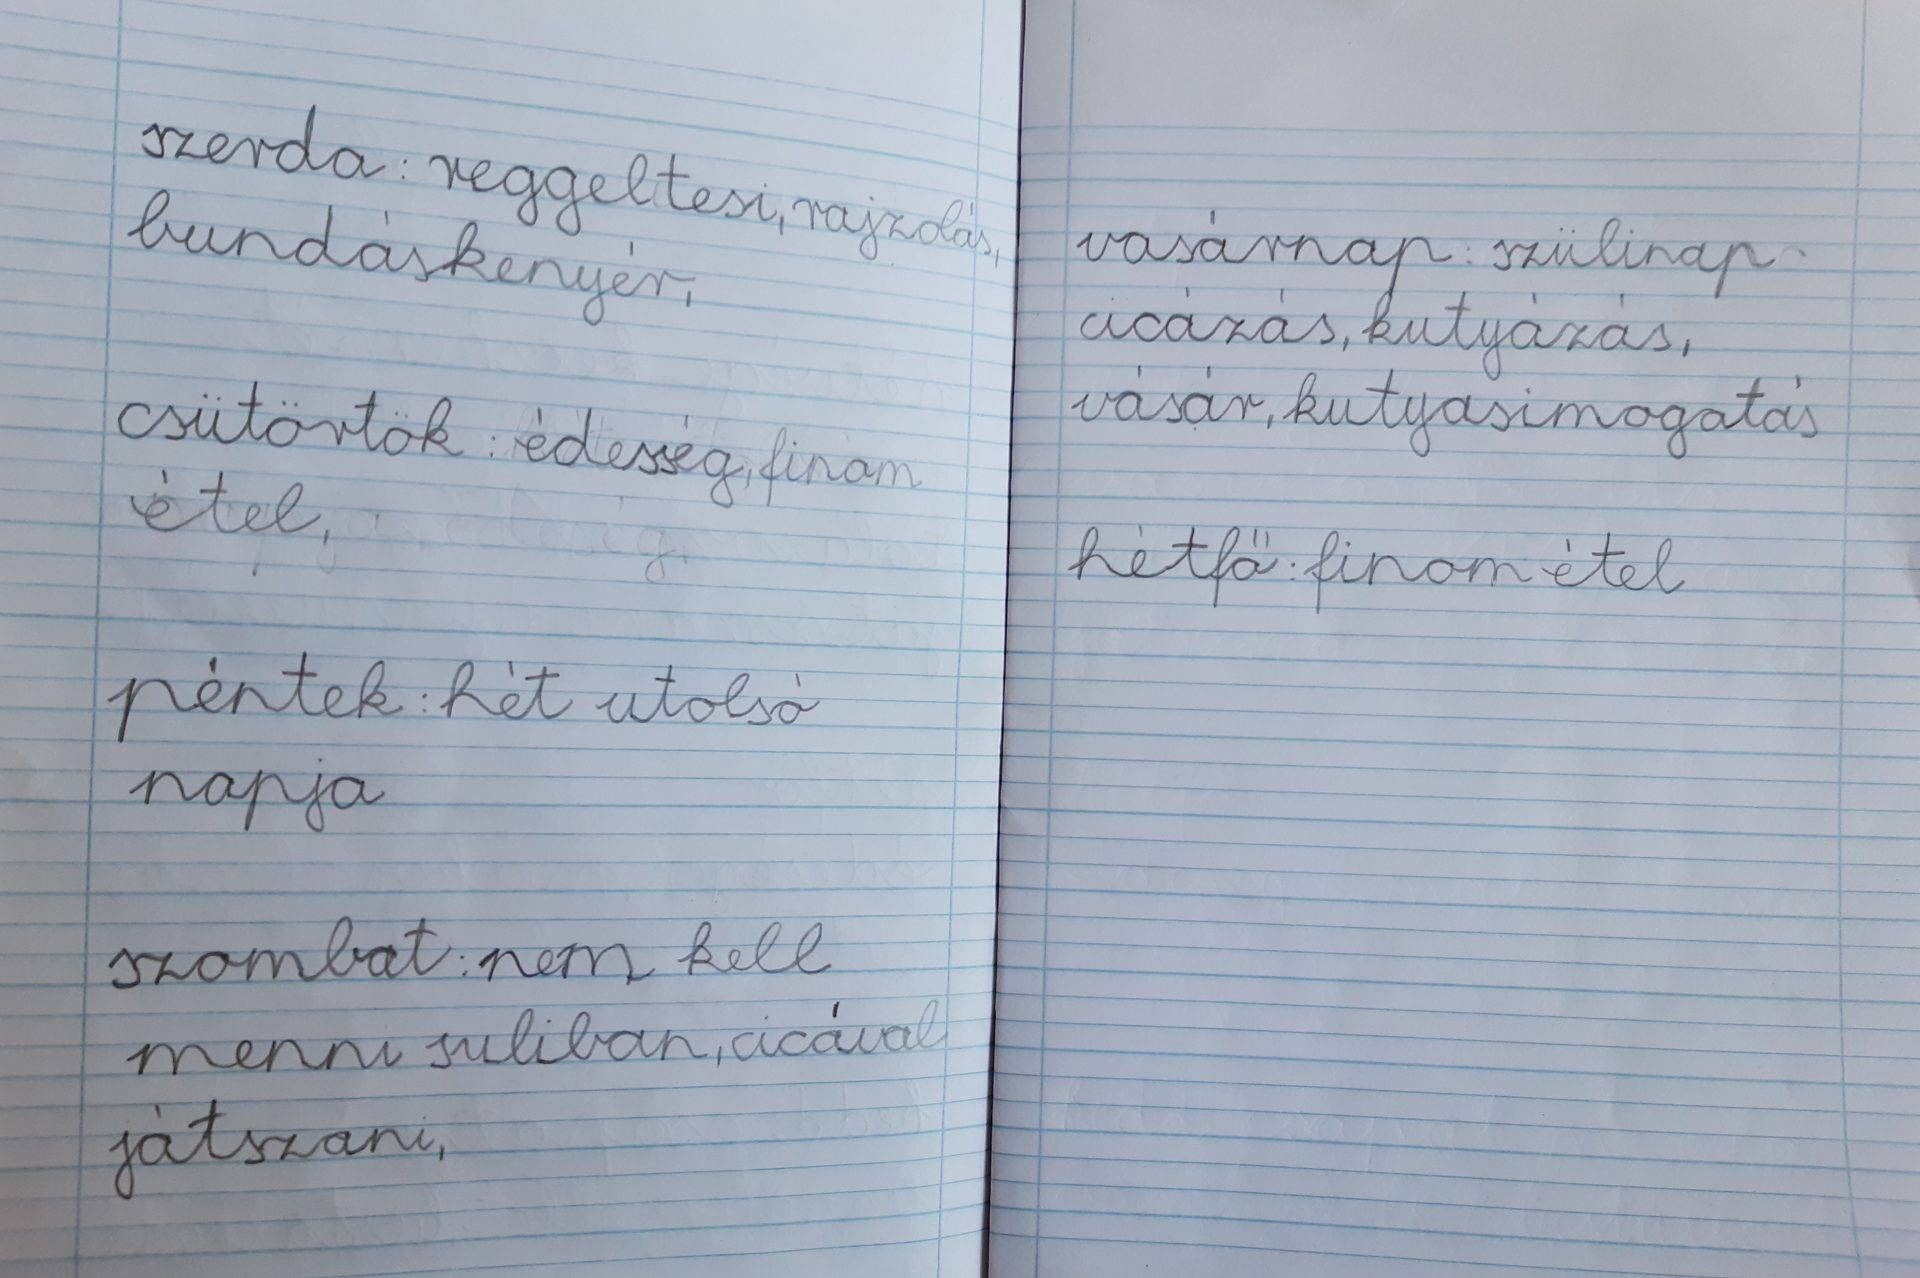 szerda: reggeltesi, rajzolás,
bundáskenyér,
csütörtök: édesség, finom
étel,
péntek: hét utolsó
napja
szombat: nem kell
menni suliban, cicával
játszani,
vasárnap: szülinap
cicázás, kutyázás,
vásár, kutyasimogatás
hétfő: finom étel